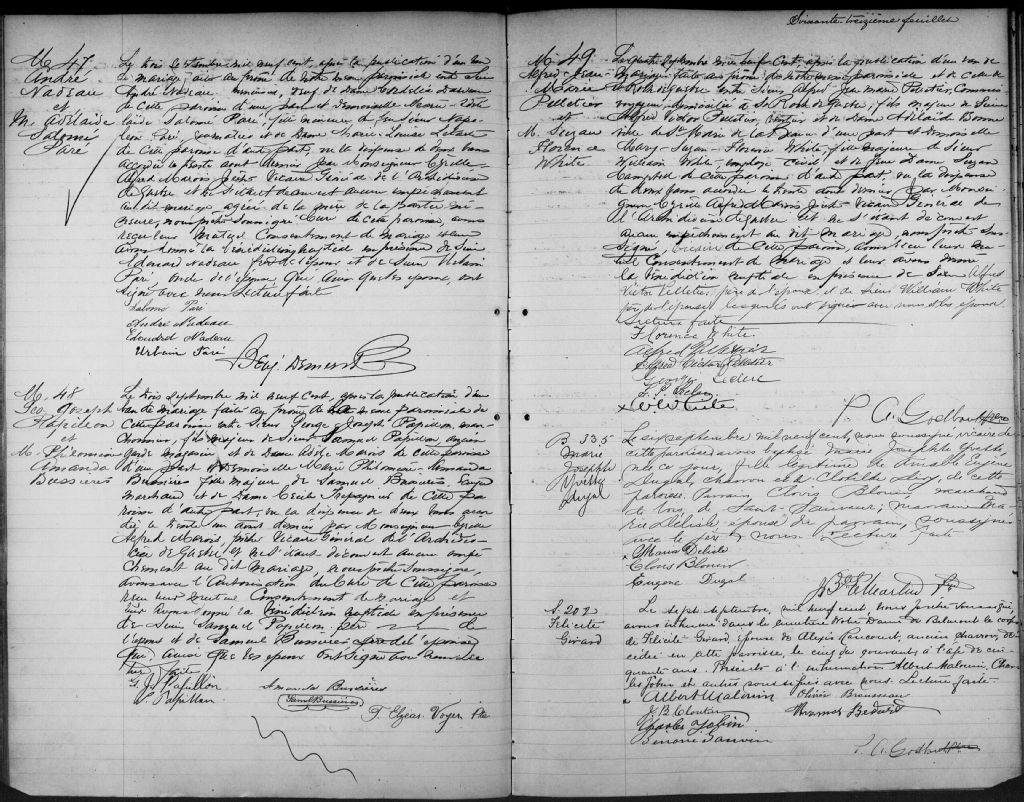 M 47
André
Nadeau
et
M. Adélaide
Salomé
Paré
Le trois septembre mil neuf cent, après la publication d'un ban
de mariage
André Nadeau, menuisier,
de cette paroisse d'une part et Demoiselle Marie-Adé
laide Salomé Paré, fille mineure de feu Sieur Napo
léon Paré, et de Dame Marie-Louise
de cette paroisse d'autre part, vu la dispense de deux bans
accordée le trente août dernier par Monseigneur Cyrille
Alfred Marois, prêtre Vicaire Général de l'Archidiocèse
de Québec et ne s'étant découvert aucun empêchement
au dit mariage,
neure, nous prêtre soussigné, Curé de cette paroisse, avons
reçu leur mutuel consentement de mariage et leur
avons donné la bénédiction nuptiale en présence de Sieur
Edouard Nadeau de l'époux et de Sieur Urbain
Paré oncle de l'épouse qui, ainsi que les époux, ont
signé avec nous. Lecture faite
Salomé Paré
André Nadeau
Edouard Nadeau
Urbain Paré
Benj. Demers Ptre
M. 48
Geo. Joseph
Papillon
et
M. Philomène
Amanda
Bussières
Le trois septembre mil neuf cent, après la publication d'un
ban de mariage faite au prône de la messe paroissiale de
cette paroisse entre Sieur George Joseph Papillon, mar-
chand, fils majeur de Sieur Samuel Papillon, ancien
garde magasin et de Dame Adèle Marois de cette paroisse
d'une part et Demoiselle Marie Philomène Amanda
Bussières fille majeure de Samuel Bussières,
marchand et de Dame Cécile Trepagney de cette pa
roisse d'autre part, vu la dispense de deux bans accor
dée le trente un août dernier par Monseigneur Cyrille
Alfred Marois, prêtre Vicaire Général de l'Archidio-
cèse de Québec et ne s'étant découvert aucun empê
chement au dit mariage, nous prêtre soussigné,
avons avec l'autorisation du Curé de cette paroisse
reçu leur mutuel consentement de mariage et
leur avons donné la bénédiction nuptiale en présence
de Sieur Samuel Papillon père de
l'époux et de Samuel Bussières père de l'épouse
qui, ainsi que les époux ont signé avec nous. Lec
ture faite
G. J. Papillon
S. Papillon
Amanda Bussières
Saml Bussières
F. Elzéar Voyer Ptre
Soixante-treizième feuillet
M. 49
Alfred-Jean-
Marie
Pelletier
et
M. Suzan
Florence
White
Le quatre septembre mil neuf cent, après la publication d'un ban de
mariage faite au prône de notre messe paroissiale et de celle de
St Roch de Québec entre Sieur Alfred-Jean-Marie Pelletier, commis
voyageur, domicilié à St Roch de Québec, fils majeur de Sieur
Alfred Victor Pelletier, et de Dame Adélaïde Bonne
ville de Ste Marie de la Beauce d'une part et Demoiselle
Mary-Suzan-Florence White, fille majeure de Sieur
William White employé civil et de feu Dame Suzan
Campbell de cette paroisse d'autre part, vu la dispense
de deux bans accordée le trente août dernier par Monsei
gneur Cyrille Alfred Marois, Prêtre Vicaire Général de
l'Archidiocèse de Québec et ne s'étant découvert
aucun empêchement au dit mariage, nous prêtre sous-
signé, vicaire de cette paroisse, avons reçu leur mu-
tuel consentement de mariage et leur avons donné
la bénédiction nuptiale en présence de Sieur Alfred
Victor Pelletier, père de l'époux, et de Sieur William White
père de l'épouse, lesquels ont signé avec nous et les époux.
Lecture faite
Florence White
Alfred Pelletier
Alfred Victor Pelletier
George Leclerc
White
P. A. Godbout Ptre
B 335
Marie
Josephte
Yvette
Dugal
Le sept septembre mil neuf cent, nous soussigné, vicaire de
cette paroisse avons baptisé Marie Josephte Yvette,
née ce jour, fille légitime de Amable Eugène
Dugal, charron et de Clotilde Dery, de cette
paroisse. Parrain, Clovis Blouin, marchand
de bois, de Saint-Sauveur; marraine Ma
rie Delisle épouse du parrain, soussignés
avec le père & nous. Lecture faite
Maria Delisle
Clovis Blouin
Eugène Dugal
S. 202
Félicité
Girard
Le sept septembre, mil neuf cent, nous prêtre soussigné,
avons inhumé dans le cimetière Notre Dame de Belmont le corps
de Félicité Girard, épouse de Alexis Rancourt, ancien charron, dé
cédée en cette paroisse, le cinq du courant, à l'âge de cin
quante ans. Présents à l'inhumation Albert Malouin, Char
les Jobin et autres soussignés avec nous. Lecture faite.
Albert Malouin
Olivier Brousseau
J B Cloutier
Thomas Bedard
Charles Jobin
P. A. Godbout Ptre